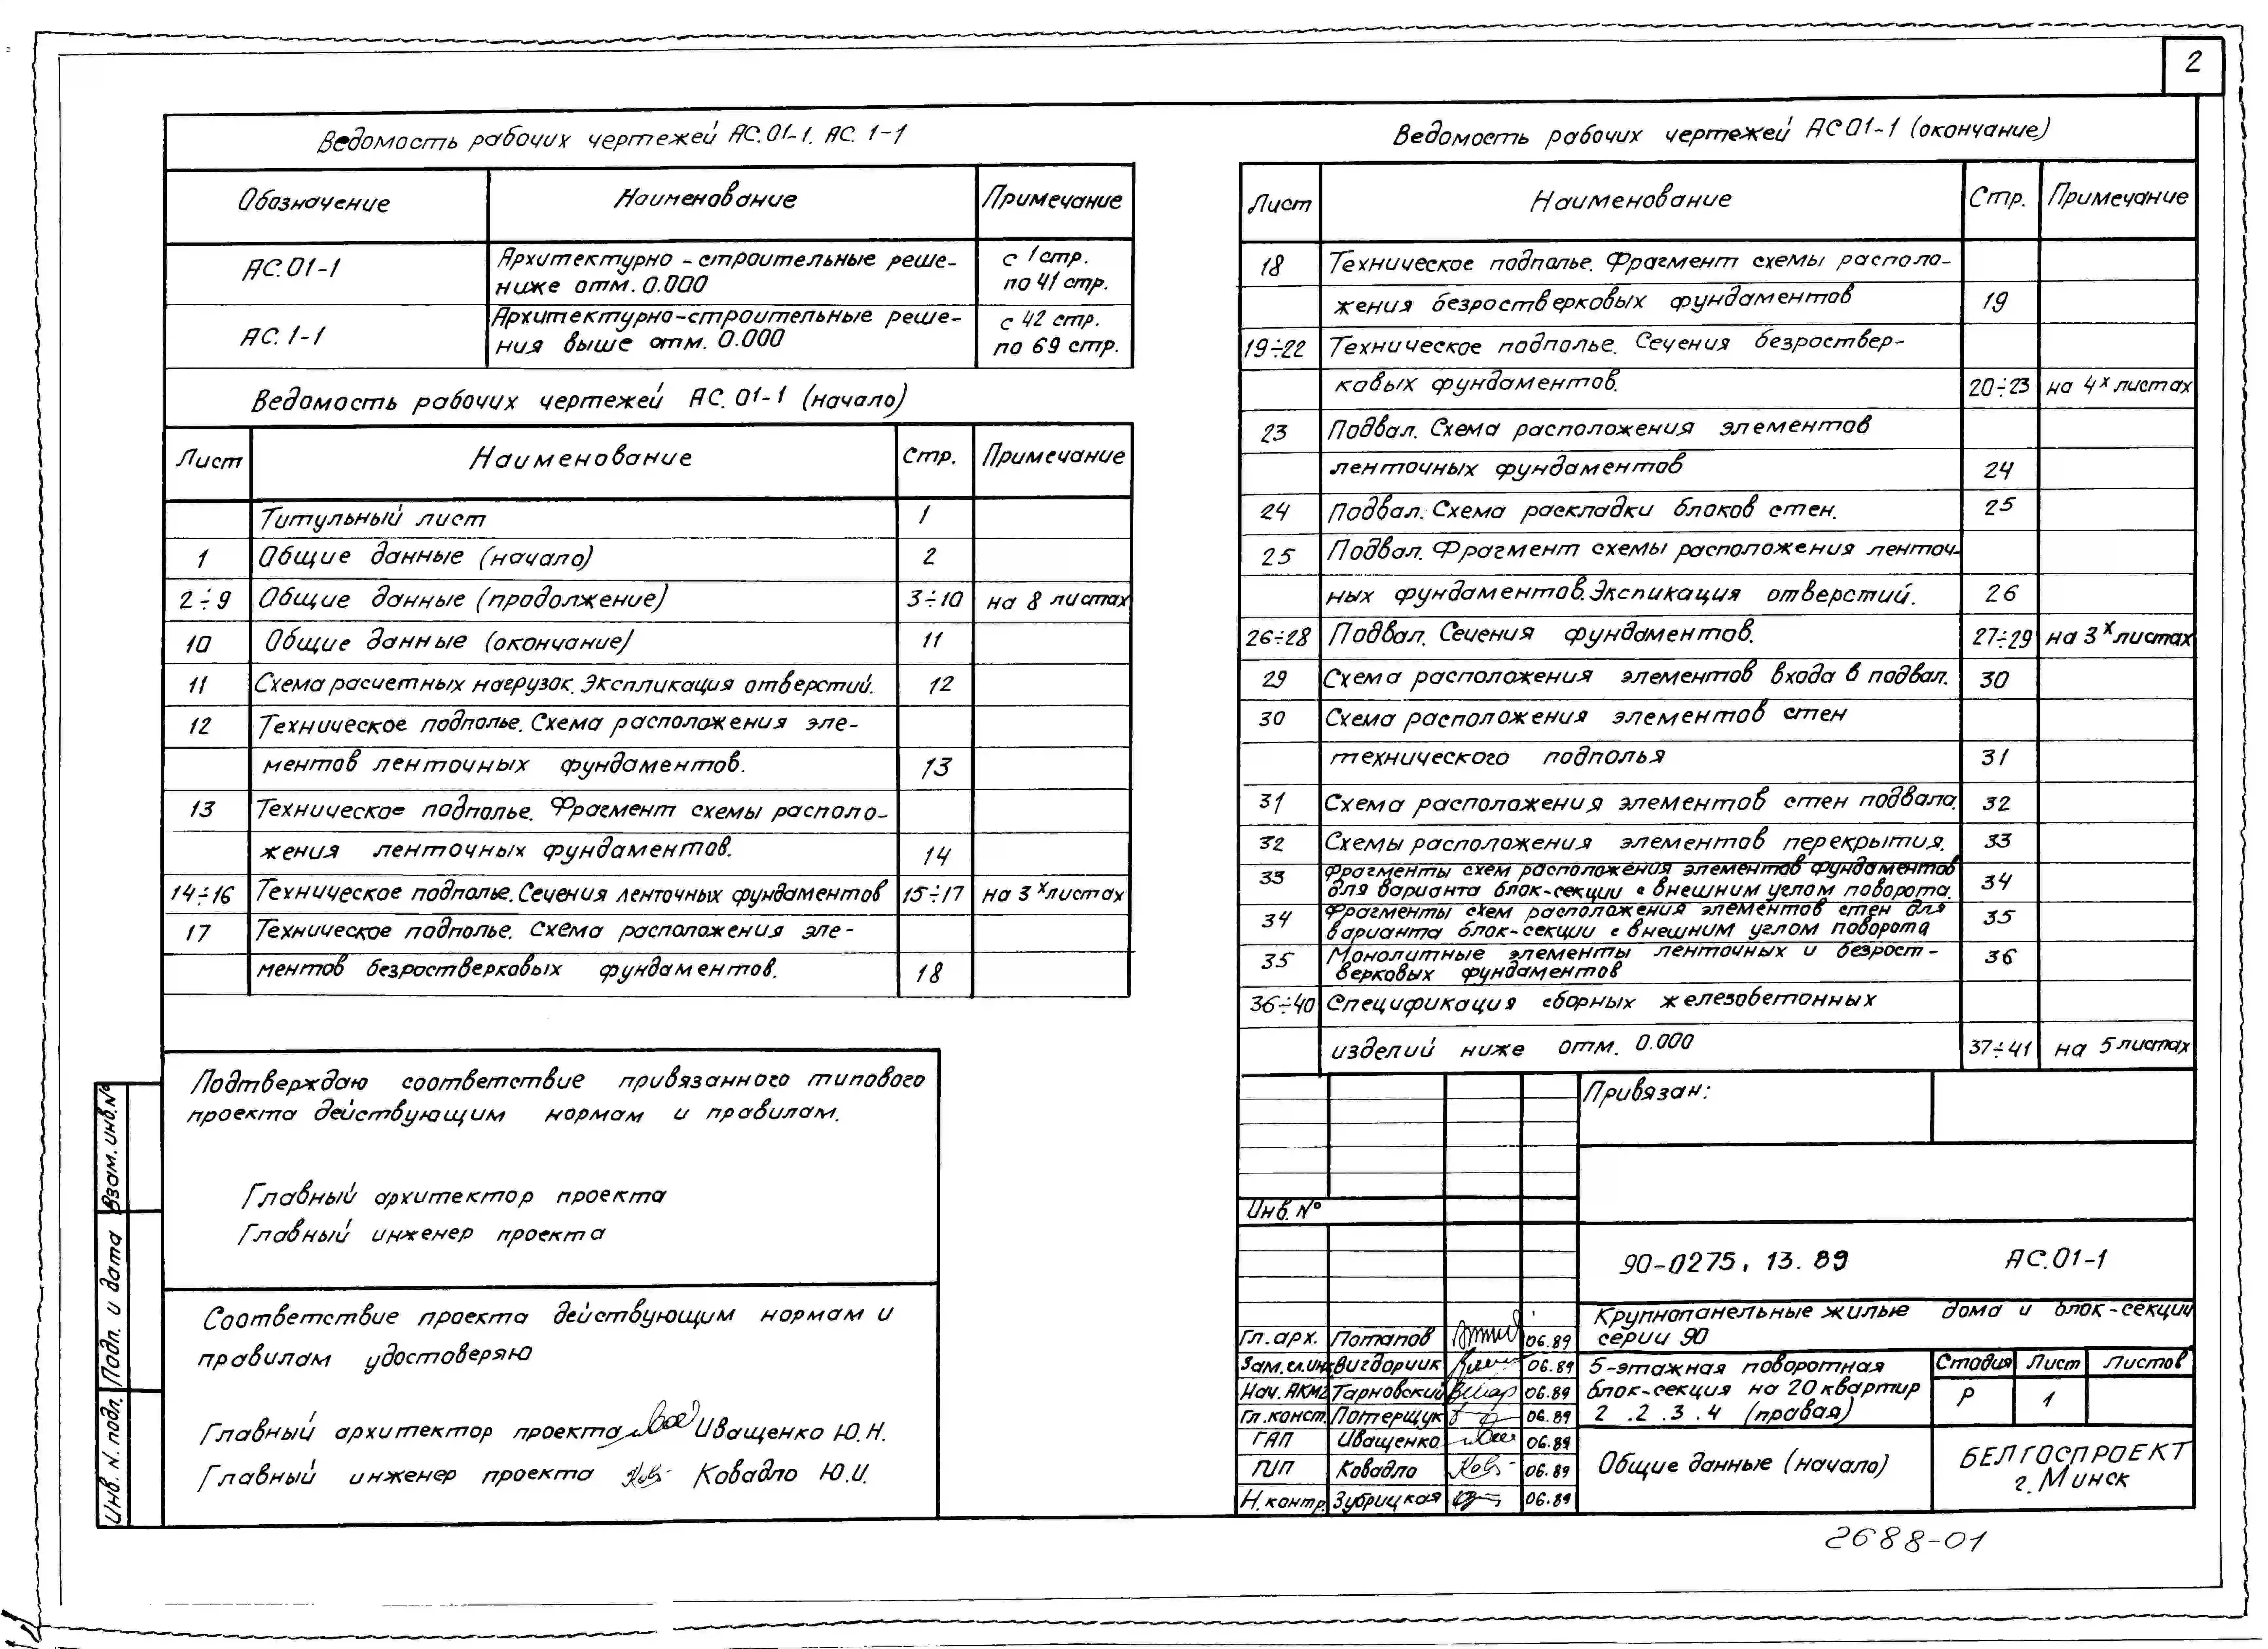 2
Ведомость рабочих чертежей АС.01-1. АС. 1-1
Обозначение Наименование Примечание
АС.01-1 Архитектурно - строительные реше- с 1 стр.
ниже отм. 0.000 по 41 стр.
АС. 1-1 Архитектурно-строительные реше- с 42 стр.
ния выше отм. 0.000 по 69 стр.
Ведомость рабочих чертежей АС. 01-1 (начало)
Лист Наименование Стр. Примечание
Титульный лист 1
1 Общие данные (начало) 2
2÷9 Общие данные (продолжение) 3÷10 на 8 листах
10 Общие данные (окончание) 11
11 Схема расчетных нагрузок. Экспликация отверстий. 12
12 Техническое подполье. Схема расположения эле-
ментов ленточных фундаментов. 13
13 Техническое подполье. Фрагмент схемы располо-
жения ленточных фундаментов. 14
14÷16 Техническое подполье. Сечения ленточных фундаментов 15÷17 на 3х листах
17 Техническое подполье. Схема расположения эле-
ментов безростверковых фундаментов. 18
Ведомость рабочих чертежей АС01-1 (окончание)
Лист Наименование Стр. Примечание
18 Техническое подполье. Фрагмент схемы располо-
жения безростверковых фундаментов 19
19÷22 Техническое подполье. Сечения безроствер-
ковых фундаментов. 20÷23 на 4х листах
23 Подвал. Схема расположения элементов
ленточных фундаментов 24
24 Подвал. Схема раскладки блоков стен. 25
25 Подвал. Фрагмент схемы расположения ленточ-
ных фундаментов. Экспикация отверстий. 26
26÷28 Подвал. Сечения фундаментов. 27÷29 на 3х листах
29 Схема расположения элементов входа в подвал. 30
30 Схема расположения элементов стен
технического подполья 31
31 Схема расположения элементов стен подвала. 32
32 Схемы расположения элементов перекрытия. 33
33 Фрагменты схем расположения элементов фундаментов
для варианта блок-секции с внешним углом поворота. 34
34 Фрагменты схем расположения элементов стен для
варианта блок-секции с внешним углом поворота 35
35 Монолитные элементы ленточных и безрост-
верковых фундаментов 36
36÷40 Спецификация сборных железобетонных
изделий ниже отм. 0.000 37÷41 на 5 листах
Подтверждаю соответствие привязанного типового
проекта действующим нормам и правилам.
Главный архитектор проекта
Главный инженер проекта
Соответствие проекта действующим нормам и
правилам удостоверяю
Главный архитектор проекта Иващенко Ю.Н.
Главный инженер проекта Ковадло Ю.И.
Взам. инв.№
Подп. и дата
Инв. N. подл.
Привязан:
Инв. №
90-0275, 13. 89 АС.01-1
Крупнопанельные жилые дома и блок-секции
серии 90
Гл.арх. Потапов 06.89
Зам.гл.инж. Вигдорчик 06.89
Нач. АКМ2 Тарновский 06.89
Гл.конст. Потерщук 06.89
ГАП Иващенко 06.89
ГИП Ковадло 06.89
Н.контр. Зубрицкая 06.89
5-этажная поворотная
блок-секция на 20 квартир
2 .2 .3 .4 (правая)
Стадия Лист Листов
Р 1
Общие данные (начало)
БЕЛГОСПРОЕКТ
г. Минск
2688-01